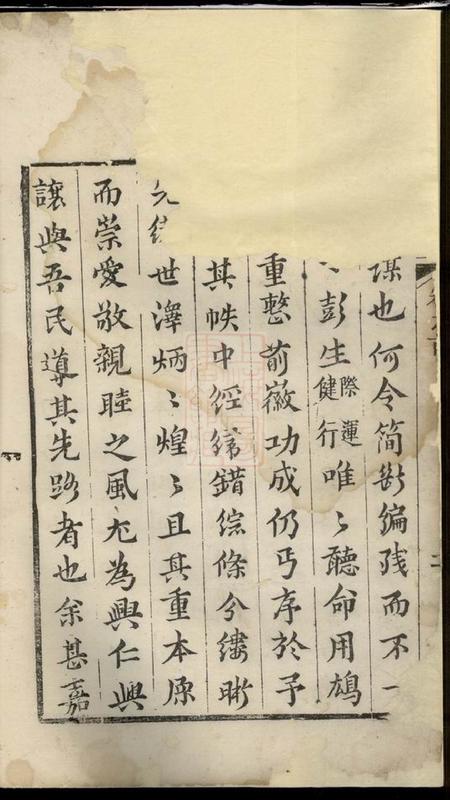 謀也何令简断编残而不一
彭生際運健行唯〻聽命用鳩
重整前徽功成仍丐序於予
其帙中經緯錯綜條分缕晰
世澤炳〻煌〻且其重本原
而崇愛敬親睦之风尤為興仁興
讓與吾民導其先路者也余甚嘉